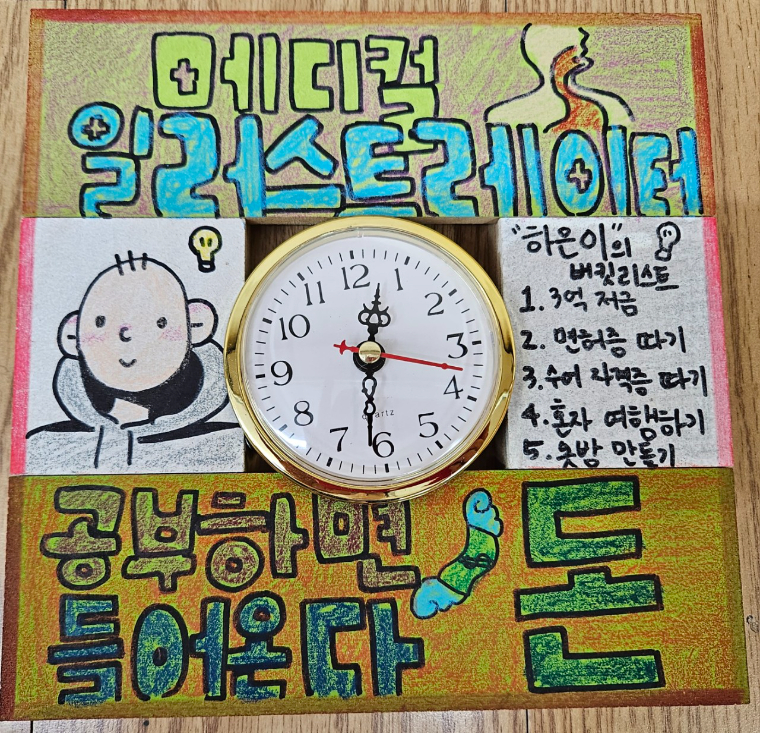 메디컬
일러스트레이터
"하온이"의
버킷리스트
1. 3억 저금
2. 면허증 따기
3. 수어 자격증 따기
4. 혼자 여행하기
5. 옷방 만들기
12
1
2
3
4
5
6
7
8
9
10
11
quartz
공부하면
들어온다
돈